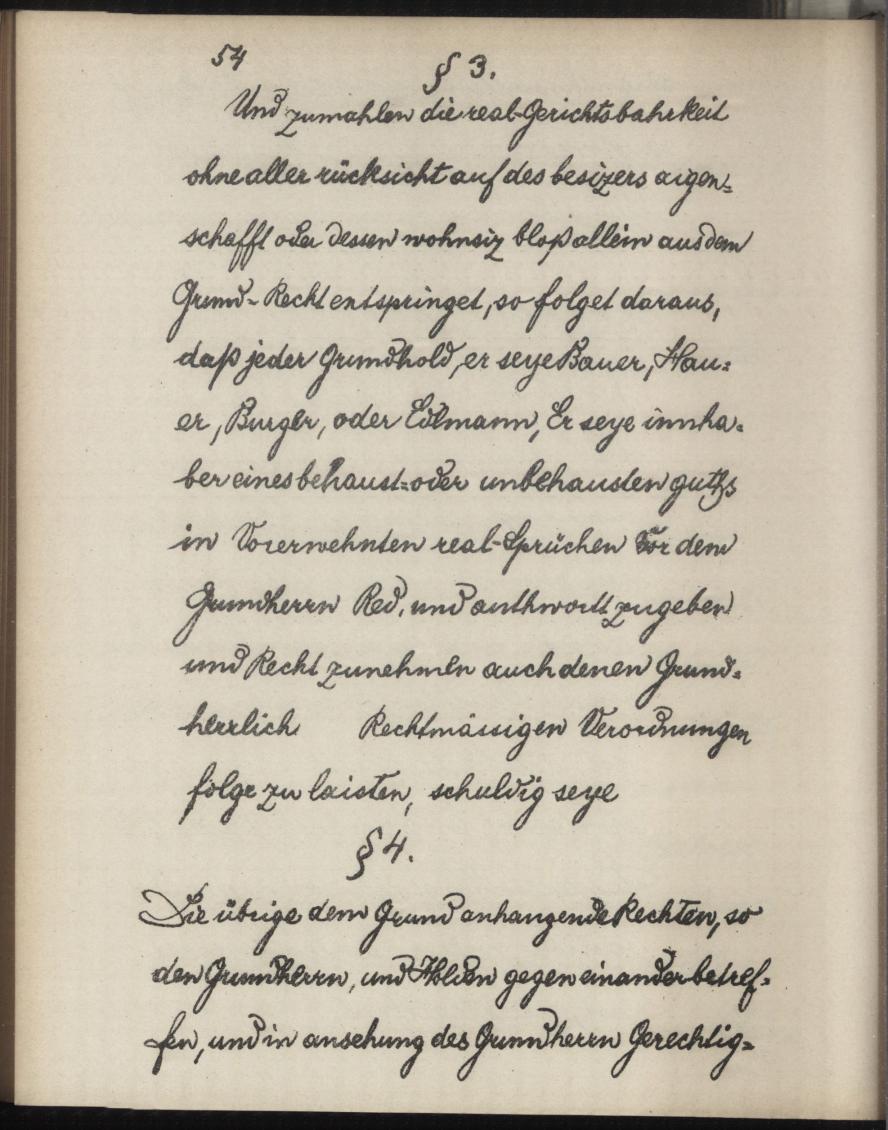 54
§ 3.
Und zumahlen die real-Gerichtsbahrkeit
ohne aller rücksicht auf des besizers aigen-
schafft oder dessen wohnsiz bloß allein aus dem
Grund-Recht entspringet, so folget daraus,
daß jeder Grundhold, er seye Bauer, Hau-
er, Burger, oder Edlmann, Er seye innha-
ber eines behaust- oder unbehausten guths
in Vorerwehnten real-Sprüchen Vor dem
Grundherrn Red, und anthwortt zugeben
und Recht zunehmen auch denen Grund-
herrlich Rechtmässigen Verordnungen
folge zu laisten, schuldig seye
§ 4.
Die übrige dem Grund anhangende Rechten, so
den Grundherrn, und Holden gegen einander betref-
fen, und in ansehung des Grundherrn Gerechtig-